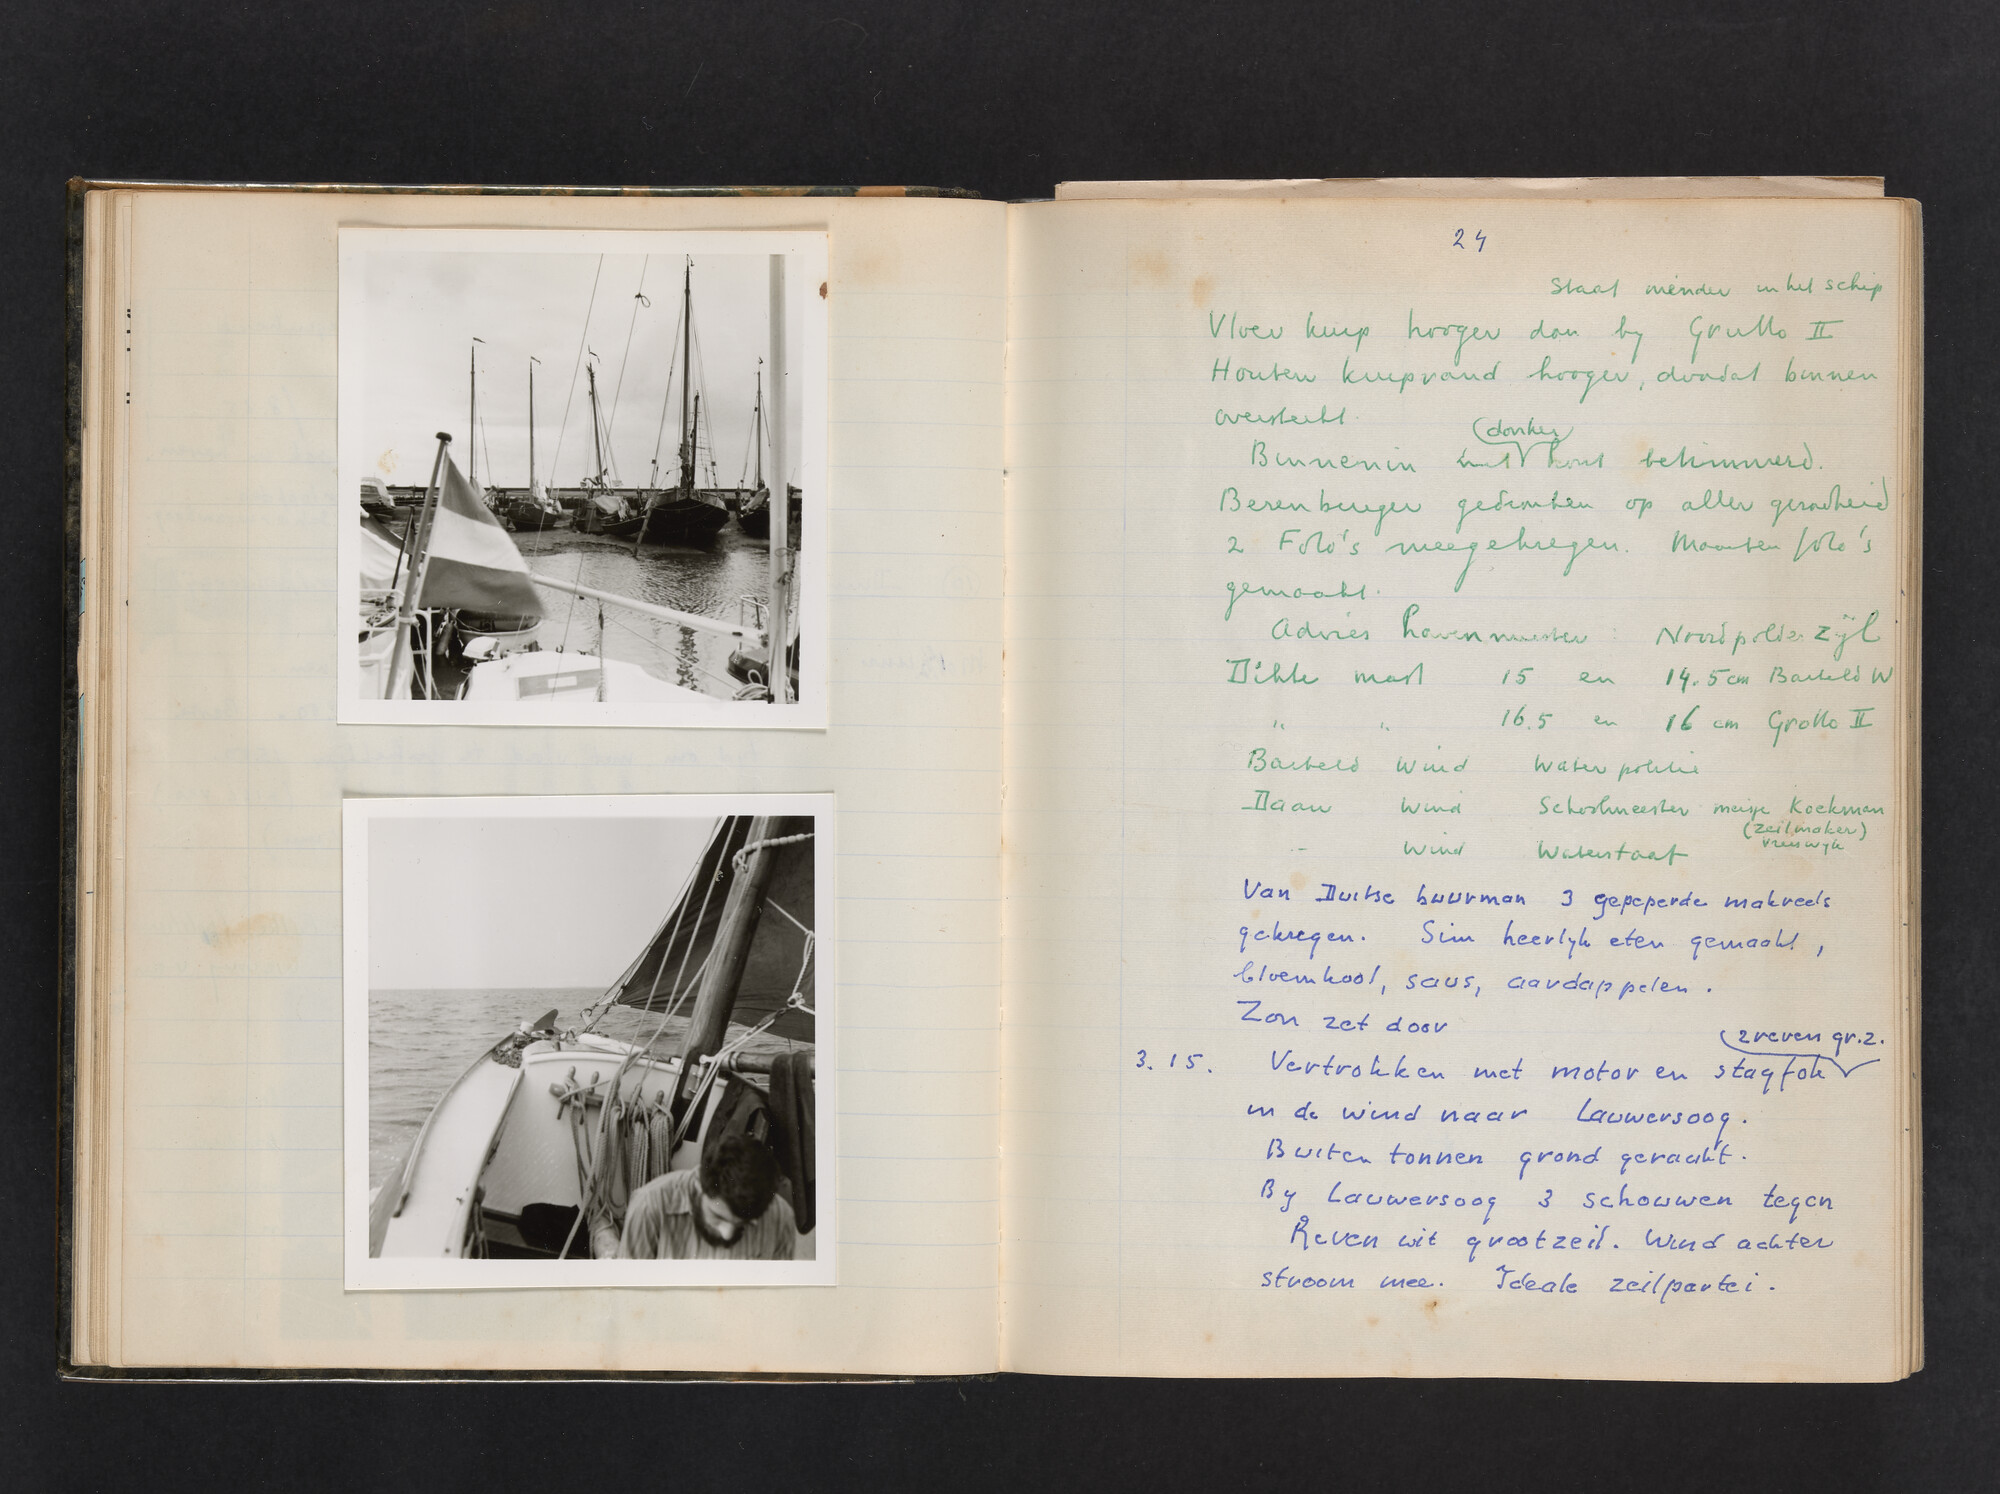 24
staat minder in het schip
Vloer kuip hooger dan by Grutto II
Houten kuiprand hooger, doordat binnen
oversteekt.
(donker)
Binnenin met hout betimmerd.
Berenburger gedronken op aller gezondheid
2 Foto's meegekregen. Maarten foto's
gemaakt.
Advies havenmeester : Noordpolderzijl
Dikte mast 15 en 14.5 cm Barteld W
" " 16.5 en 16 cm Grutto II
Barteld Wind Waterpolitie
Daan Wind Schoolmeester meisje Koekman
(zeilmaker)
Vreeswyk
- Wind Waterstaat
Van Duitse buurman 3 gepeperde makreels
gekregen. Sim heerlyk eten gemaakt,
bloemkool, saus, aardappelen.
Zon zet door
2 reven gr.z.
3.15. Vertrokken met motor en stagfok
in de wind naar Lauwersoog.
Buiten tonnen grond geraakt.
By Lauwersoog 3 schouwen tegen
Reven uit grootzeil. Wind achter
stroom mee. Ideale zeilpartei.